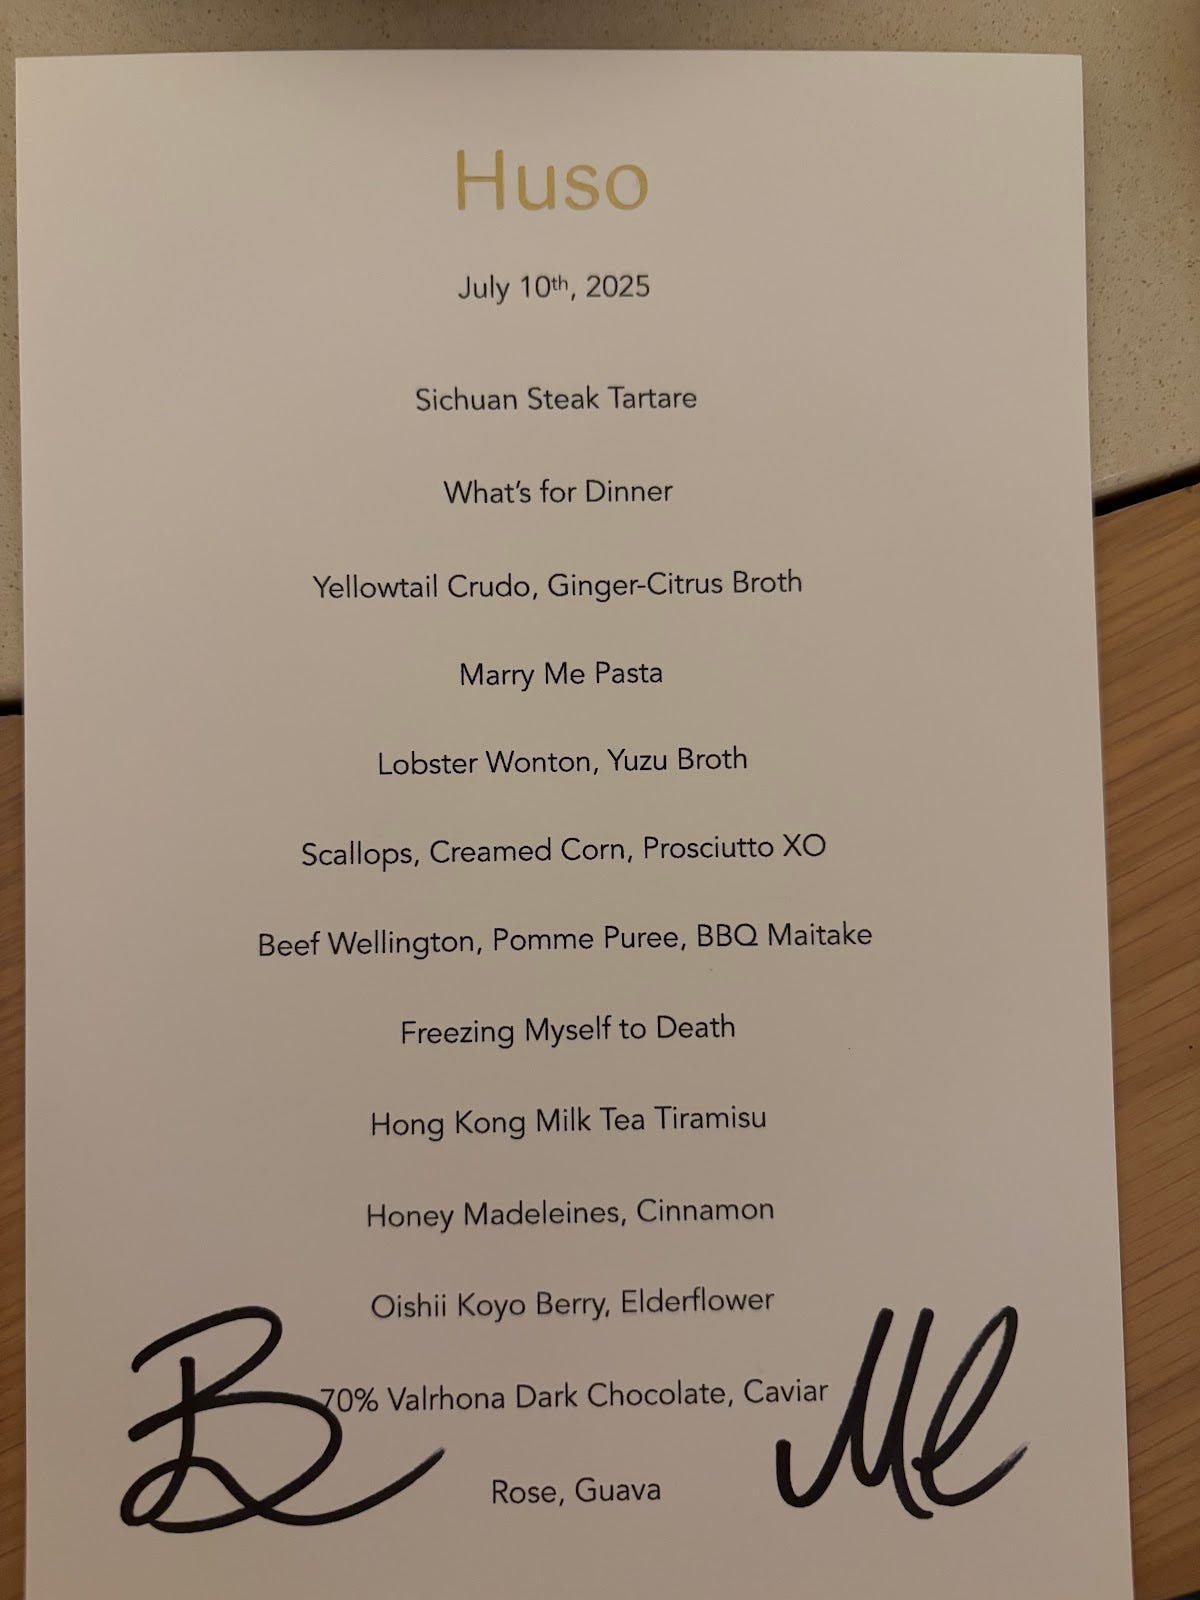 Huso
July 10th, 2025
Sichuan Steak Tartare
What's for Dinner
Yellowtail Crudo, Ginger-Citrus Broth
Marry Me Pasta
Lobster Wonton, Yuzu Broth
Scallops, Creamed Corn, Prosciutto XO
Beef Wellington, Pomme Puree, BBQ Maitake
Freezing Myself to Death
Hong Kong Milk Tea Tiramisu
Honey Madeleines, Cinnamon
Oishii Koyo Berry, Elderflower
70% Valrhona Dark Chocolate, Caviar
Rose, Guava